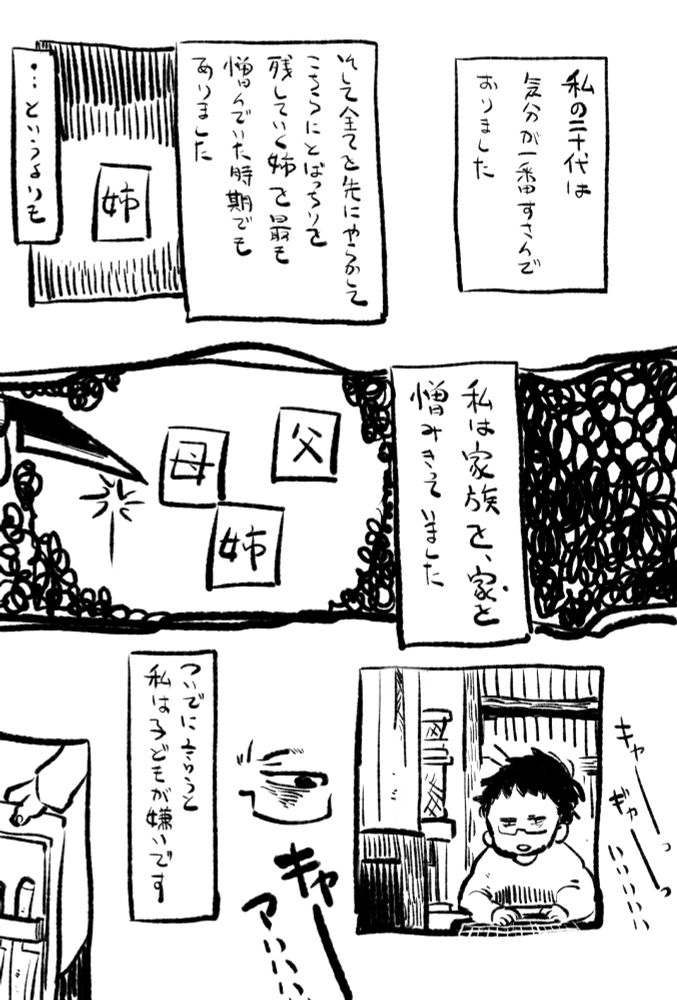 私の二十代は
気分が一番すさんで
おりました
そして全てを先にやらかして
こちらにとばっちりを
残していく姉を最も
憎んでいた時期でも
ありました
姉
…というよりも
私は家族を、家を
憎みきっていました
父
母
姉
キャーーっ
ギャーーっ
いいいいい
ついでに言うと
私は子どもが嫌いです
キャー
アいいい